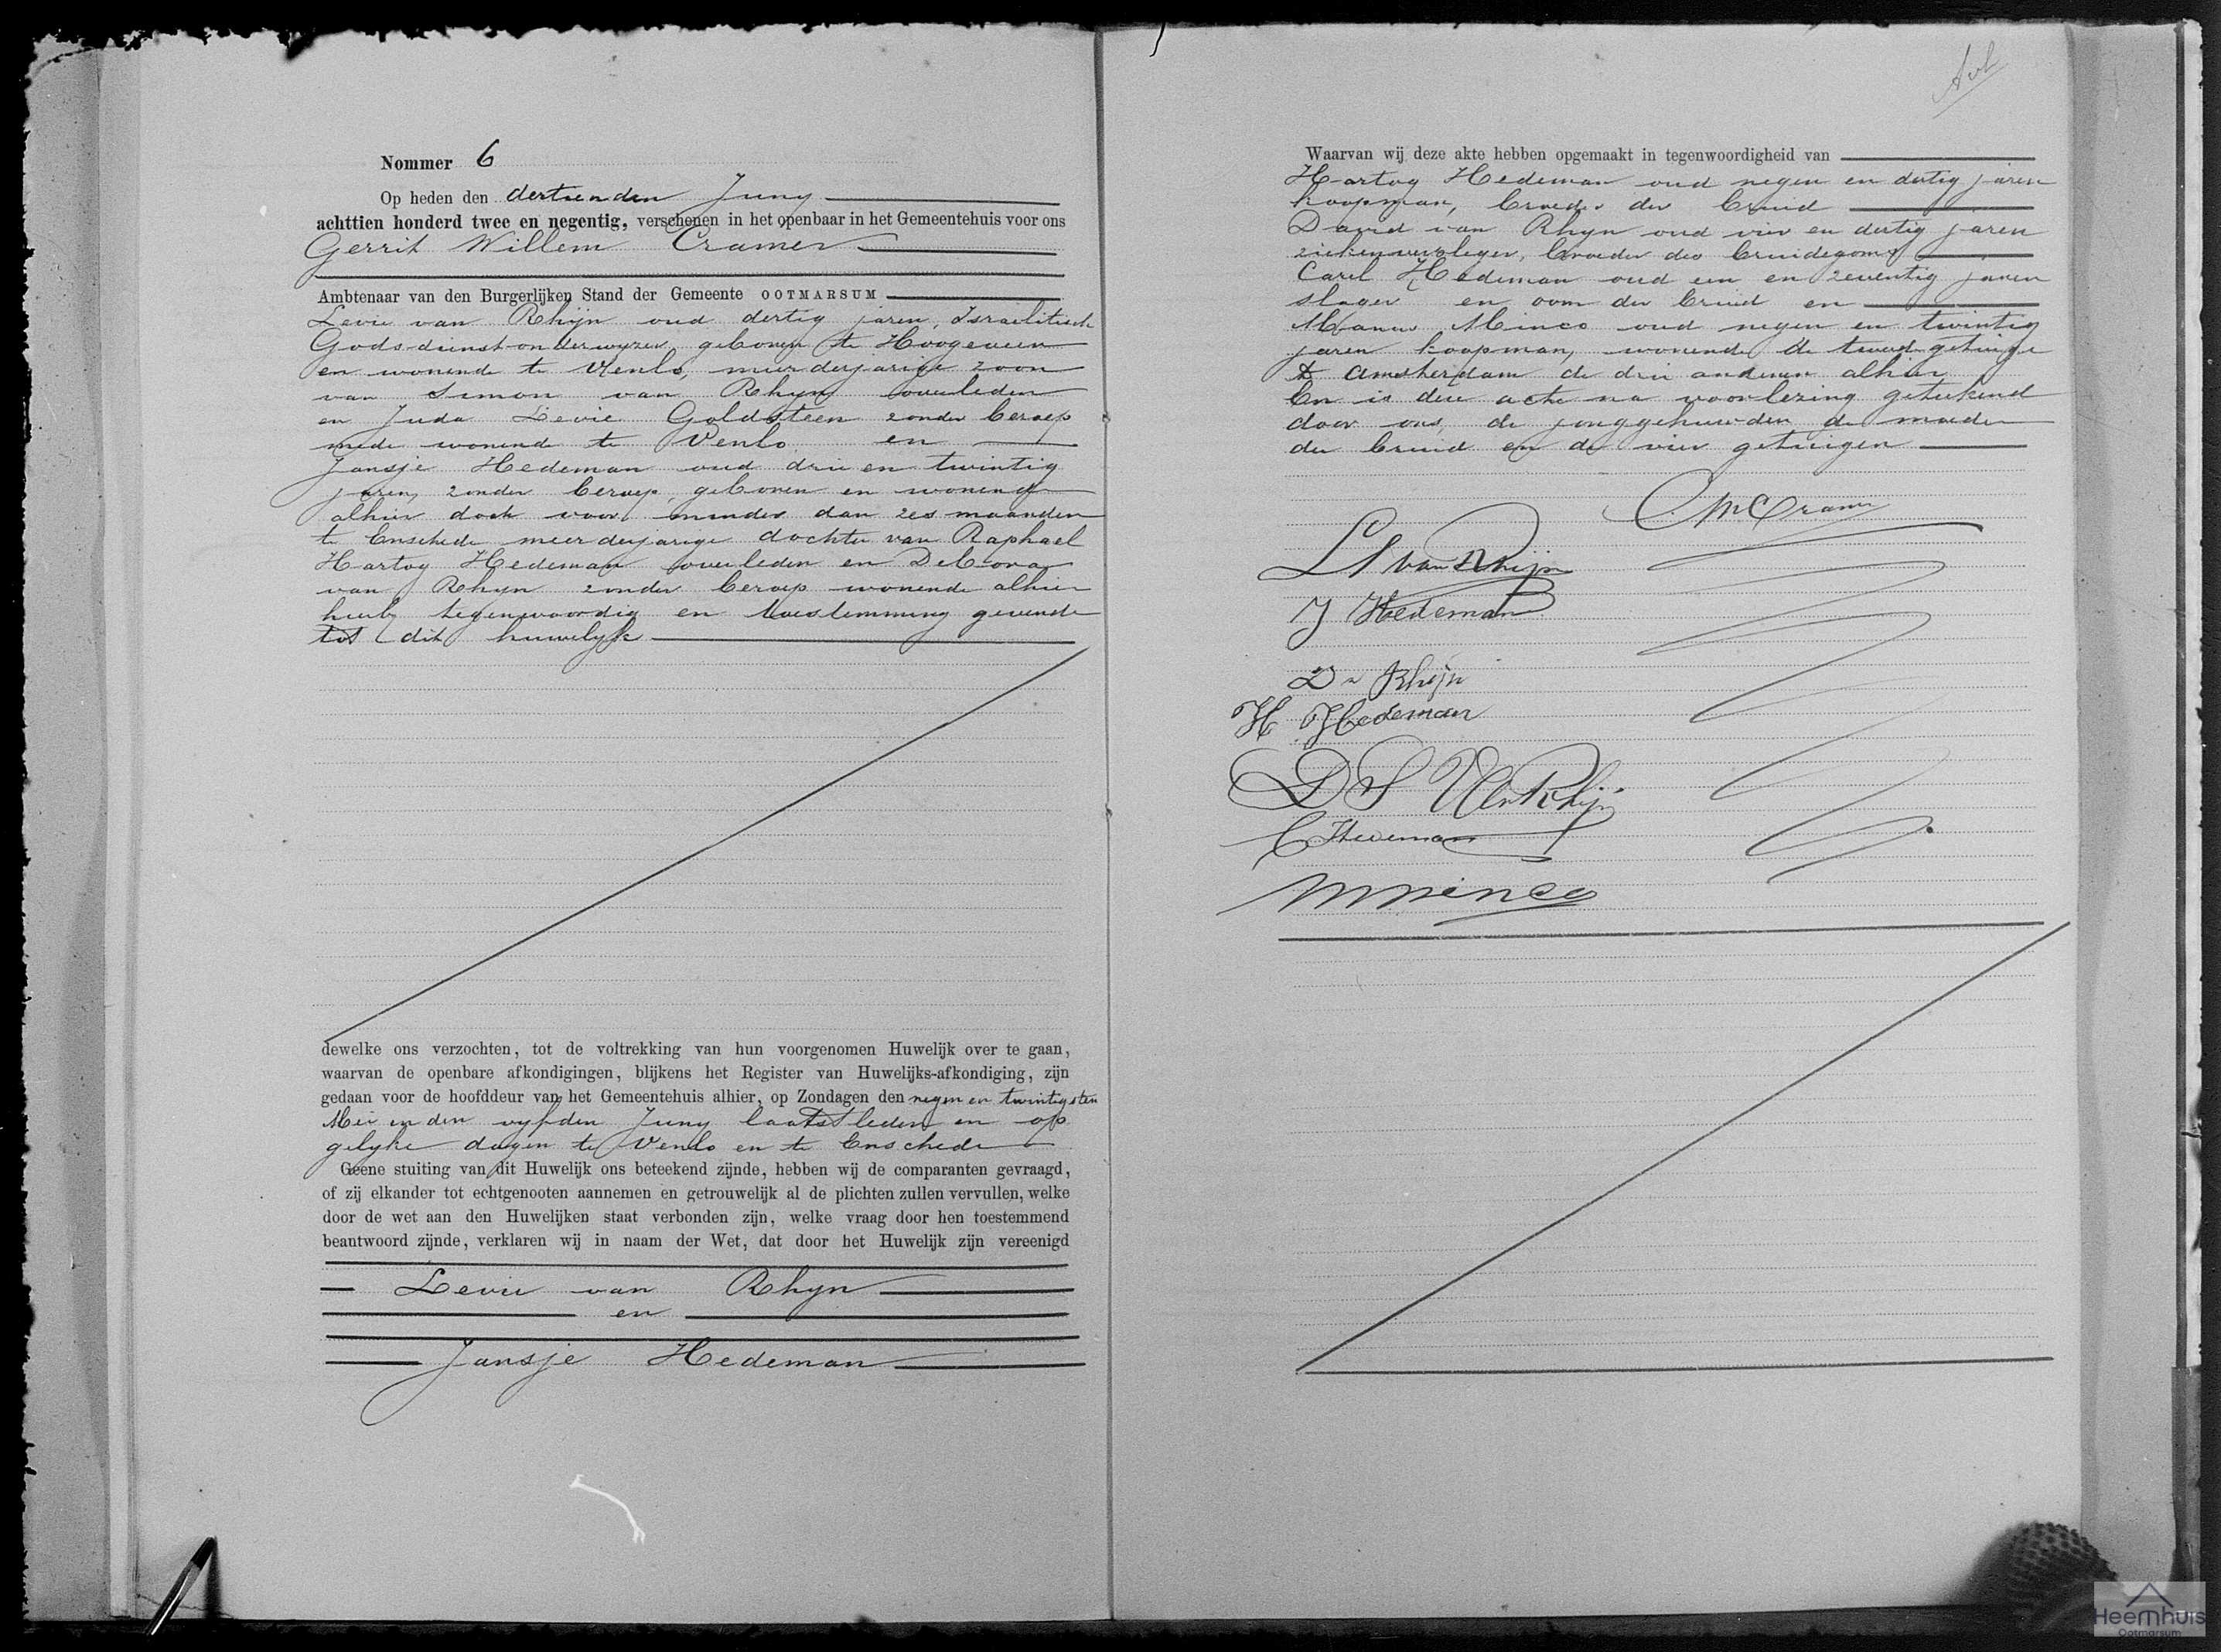 Nommer 6
Op heden den dertienden Juny
achttien honderd twee en negentig, verschenen in het openbaar in het Gemeentehuis voor ons
Gerrit Willem Cramer
Ambtenaar van den Burgerlijken Stand der Gemeente OOTMARSUM
Levie van Rhijn oud dertig jaren, Israelitisch
Godsdienst-onderwyzer, geboren te Hoogeveen
en wonende te Venlo, meerderjarige zoon
van Simon van Rhyn overleden
en Juda Levie Goldsteen zonder beroep
mede wonende te Venlo en
Jansje Hedeman oud drie en twintig
jaren, zonder beroep, geboren en wonende
alhier doch voor minder dan zes maanden
te Enschede meerderjarige dochter van Raphael
Hartog Hedeman overleden en Debora
van Rhyn zonder beroep wonende alhier
hierby tegenwoordig en toestemming gevende
tot dit huwelyk
dewelke ons verzochten, tot de voltrekking van hun voorgenomen Huwelijk over te gaan,
waarvan de openbare afkondigingen, blijkens het Register van Huwelijks-afkondiging, zijn
gedaan voor de hoofddeur van het Gemeentehuis alhier, op Zondagen den negen en twintigsten
Mei en den vyfden Juny laatstleden en op
gelyke dagen te Venlo en te Enschede
Geene stuiting van dit Huwelijk ons beteekend zijnde, hebben wij de comparanten gevraagd,
of zij elkander tot echtgenooten aannemen en getrouwelijk al de plichten zullen vervullen, welke
door de wet aan den Huwelijken staat verbonden zijn, welke vraag door hen toestemmend
beantwoord zijnde, verklaren wij in naam der Wet, dat door het Huwelijk zijn vereenigd
Levie van Rhyn
en
Jansje Hedeman
Waarvan wij deze akte hebben opgemaakt in tegenwoordigheid van
Hartog Hedeman oud negen en dertig jaren
koopman, broeder der bruid
David van Rhyn oud vier en dertig jaren
ziekenverpleger, broeder des bruidegoms
Carel Hedeman oud een en zeventig jaren
slager en oom der bruid en
Manus Minco oud negen en twintig
jaren koopman, wonende de tweede getuige
te Amsterdam de drie anderen alhier
En is deze acte na voorlezing geteekend
door ons, de jonggehuwden de moeder
der bruid en de vier getuigen
Cramer
LS van Rhijn
J Hedeman
D v Rhijn
H Hedeman
D S Van Rhijn
C Hedeman
M Minco
Heemhuis
Ootmarsum